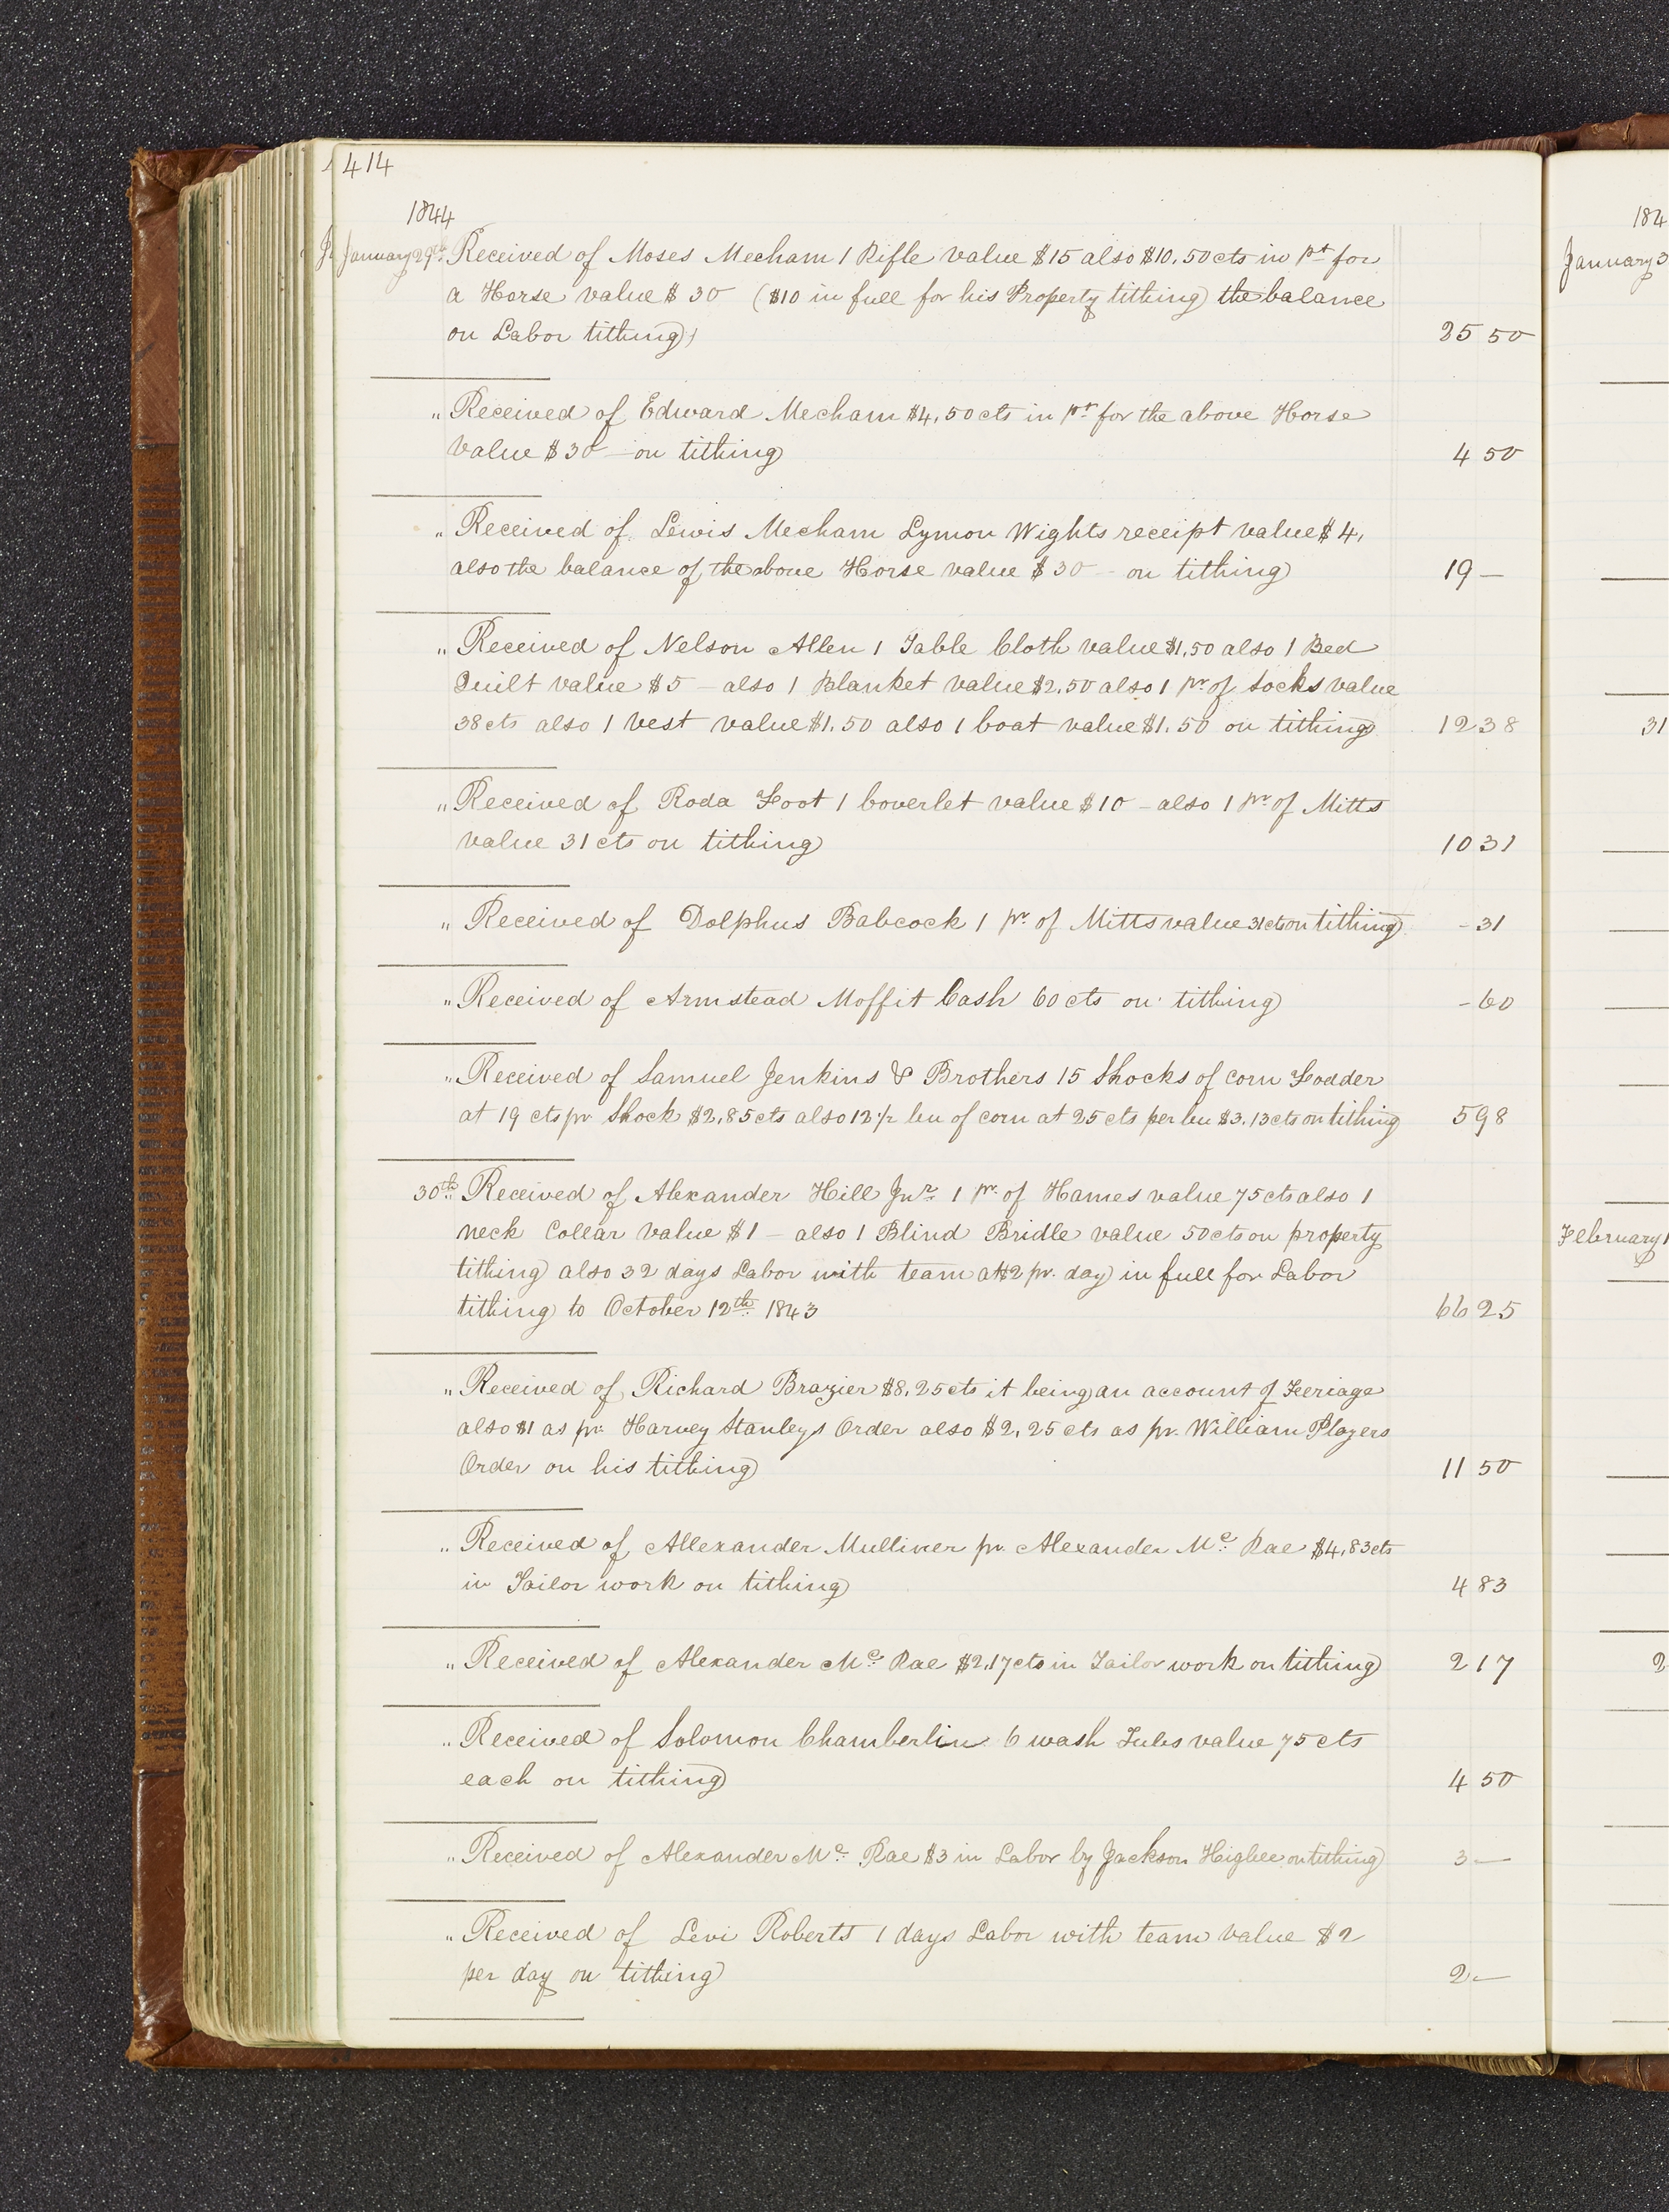 414
1844
January 29th Received of Moses Mecham 1 Rifle value $15 also $10.50 cts in pt for
a Horse value $30 ($10 in full for his Property tithing) the balance
on Labor tithing) 25 50
" Received of Edward Mecham $4.50 cts in pt for the above Horse
value $30 - on tithing 4 50
" Received of Lewis Mecham Lymon Wights receipt value $4.
also the balance of the above Horse value $30 - on tithing 19 -
" Received of Nelson Allen 1 Table Cloth value $1.50 also 1 Bed
Quilt value $5 - also 1 Blanket value $2.50 also 1 pr of Socks value
38 cts also 1 vest value $1.50 also 1 Coat value $1.50 on tithing 12 38
" Received of Roda Foot 1 Coverlet value $10 - also 1 pr of Mitts
value 31 cts on tithing 10 31
" Received of Dolphus Babcock 1 pr of Mitts value 31 cts on tithing - 31
" Received of Armstead Moffit Cash 60 cts on tithing - 60
" Received of Samuel Jenkins & Brothers 15 Shocks of corn Fodder
at 19 cts pr Shock $2.85 cts also 12 1/2 bu of corn at 25 cts per bu $3.13 cts on tithing 5 98
30th Received of Alexander Hill Jnr 1 pr of Hames value 75 cts also 1
neck Collar value $1 - also 1 Blind Bridle value 50 cts on property
tithing also 32 days Labor with team at $2 pr. day in full for Labor
tithing to October 12th 1843 66 25
" Received of Richard Brazier $8.25 cts it being an account of Feriage
also $1 as pr Harvey Stanleys Order also $2.25 cts as pr. William Players
Order on his tithing 11 50
" Received of Allexander Mulliner pr. Alexander Mc Rae $4.83 cts
in Tailor work on tithing 4 83
" Received of Alexander Mc Rae $2.17 cts in Tailor work on tithing 2 17
" Received of Solomon Chamberlin 6 wash Tubs value 75 cts
each on tithing 4 50
" Received of Alexander Mc Rae $3 in Labor by Jackson Higbee on tithing 3 -
" Received of Levi Roberts 1 days Labor with team value $2
per day on tithing 2 -
184
January 3
31
February 1
2